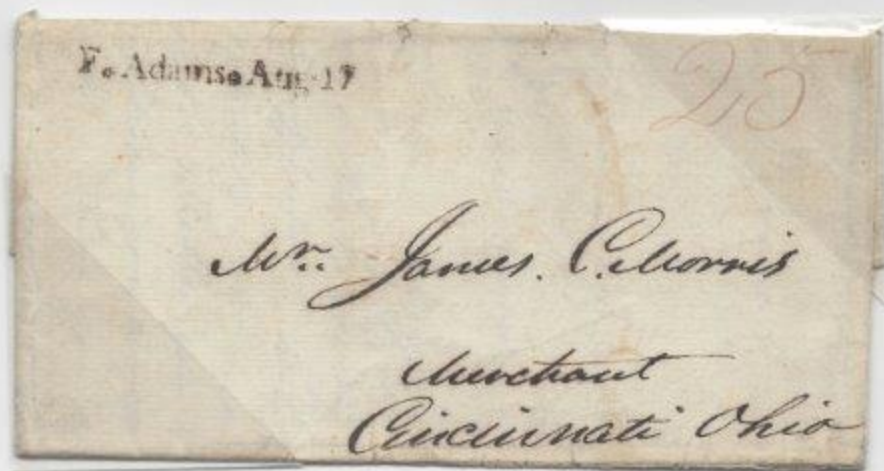 F. Adams. Aug 17
25
Mr. James. C. Morris
Merchant
Cincinnati Ohio